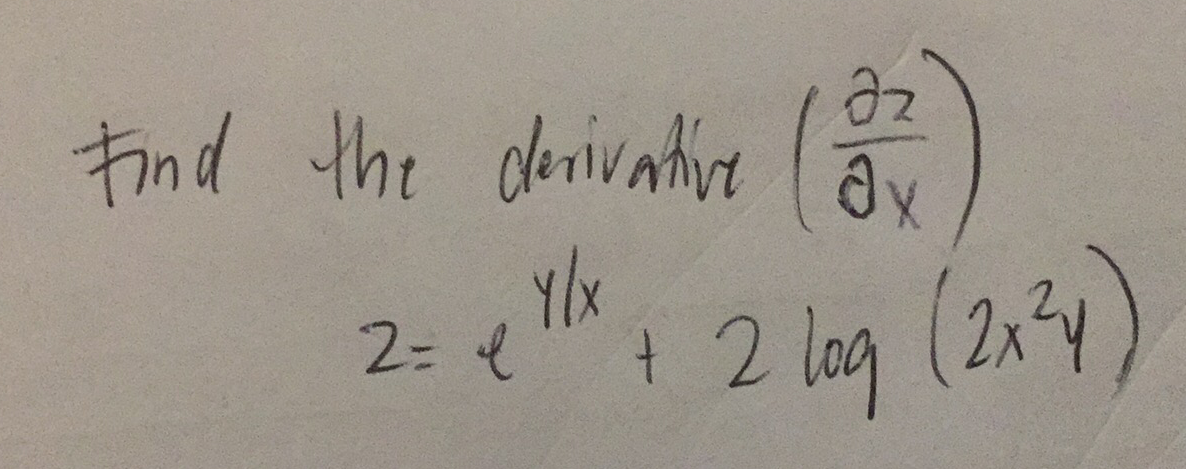 Find the derivative (∂z/∂x)
z = e^{y/x} + 2 log (2x²y)